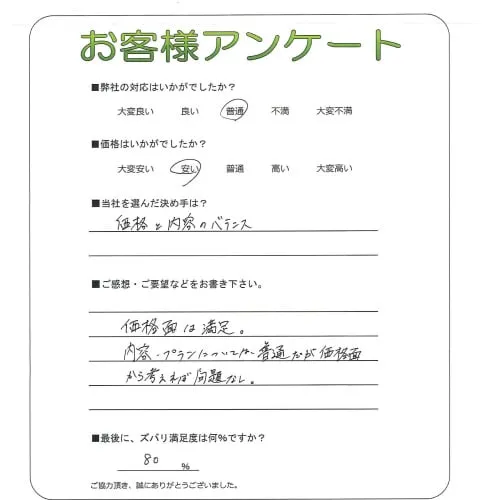 お客様アンケート
■弊社の対応はいかがでしたか？
大変良い 良い 普通 不満 大変不満
■価格はいかがでしたか？
大変安い 安い 普通 高い 大変高い
■当社を選んだ決め手は？
価格と内容のバランス
■ご感想・ご要望などをお書き下さい。
価格面は満足。
内容・プランについては、普通だが価格面
から考えれば問題なし。
■最後に、ズバリ満足度は何％ですか？
80 ％
ご協力頂き、誠にありがとうございました。